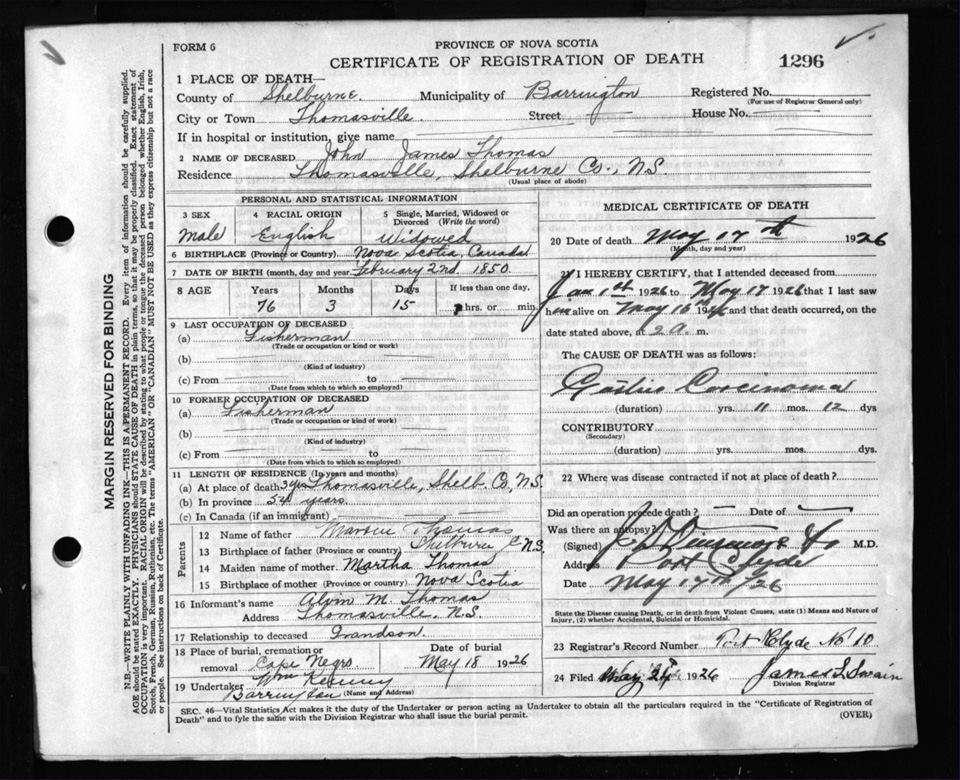 FORM 6
PROVINCE OF NOVA SCOTIA
CERTIFICATE OF REGISTRATION OF DEATH
1296
1 PLACE OF DEATH—
County of Shelburne. Municipality of Barrington Registered No.
(For use of Registrar General only)
City or Town Thomasville. Street House No.
If in hospital or institution, give name
2 NAME OF DECEASED John James Thomas
Residence Thomasville, Shelburne Co., N.S.
(Usual place of abode)
PERSONAL AND STATISTICAL INFORMATION
3 SEX 4 RACIAL ORIGIN 5 Single, Married, Widowed or Divorced (Write the word)
Male English Widowed
6 BIRTHPLACE (Province or Country) Nova Scotia, Canada.
7 DATE OF BIRTH (month, day and year) February 2nd. 1850.
8 AGE Years Months Days If less than one day,
76 3 15 hrs. or min.
9 LAST OCCUPATION OF DECEASED
(a) Fisherman
(Trade or occupation or kind of work)
(b)
(Kind of industry)
(c) From to
(Date from which to which so employed)
10 FORMER OCCUPATION OF DECEASED
(a) Fisherman
(Trade or occupation or kind of work)
(b)
(Kind of industry)
(c) From to
(Date from which to which so employed)
11 LENGTH OF RESIDENCE (In years and months)
(a) At place of death Thomasville, Shelb. Co., N.S.
(b) In province 54 years.
(c) In Canada (if an immigrant)
Parents
12 Name of father Thomas
13 Birthplace of father (Province or country) N.S.
14 Maiden name of mother Martha Thomas
15 Birthplace of mother (Province or country) Nova Scotia
16 Informant's name Alvin M. Thomas
Address Thomasville, N.S.
17 Relationship to deceased Grandson.
18 Place of burial, cremation or removal Cape Negro Date of burial May 18 1926
19 Undertaker Wm Kenny
Barrington (Name and Address)
MEDICAL CERTIFICATE OF DEATH
20 Date of death May 17th 1926
(Month, day and year)
I HEREBY CERTIFY, that I attended deceased from
Jan 1st 1926 to May 17 1926 that I last saw
him alive on May 16th 1926 and that death occurred, on
date stated above, at 2 a. m.
The CAUSE OF DEATH was as follows:
Gastric Carcinoma
(duration) yrs. 11 mos. 12 dys
CONTRIBUTORY
(Secondary)
(duration) yrs. mos. dys.
22 Where was disease contracted if not at place of death?
Did an operation precede death? — Date of —
Was there an autopsy?
(Signed) M.D.
Address Port Clyde
Date May 17th/26
State the Disease causing Death, or in death from Violent Causes, state (1) Means and Nature of
Injury, (2) whether Accidental, Suicidal or Homicidal.
23 Registrar's Record Number Port Clyde No 10
24 Filed May 24th 1926 James S. Swain
Division Registrar
SEC. 46—Vital Statistics Act makes it the duty of the Undertaker or person acting as Undertaker to obtain all the particulars required in the "Certificate of Registration of
Death" and to fyle the same with the Division Registrar who shall issue the burial permit.
(OVER)
MARGIN RESERVED FOR BINDING
N.B.—WRITE PLAINLY, WITH UNFADING INK—THIS IS A PERMANENT RECORD. Every item of information should be carefully supplied.
AGE should be stated EXACTLY. PHYSICIANS should STATE CAUSE OF DEATH in plain terms, so that it may be properly classified. Exact statement of
OCCUPATION is very important. RACIAL ORIGIN will be described by stating to what people or tongue the deceased person belonged whether English, Irish,
Scotch, French, German, Russian, Ruthenian, etc. The terms "AMERICAN" OR "CANADIAN" MUST NOT BE USED as they express citizenship but not a race
or people. See instructions on back of Certificate.